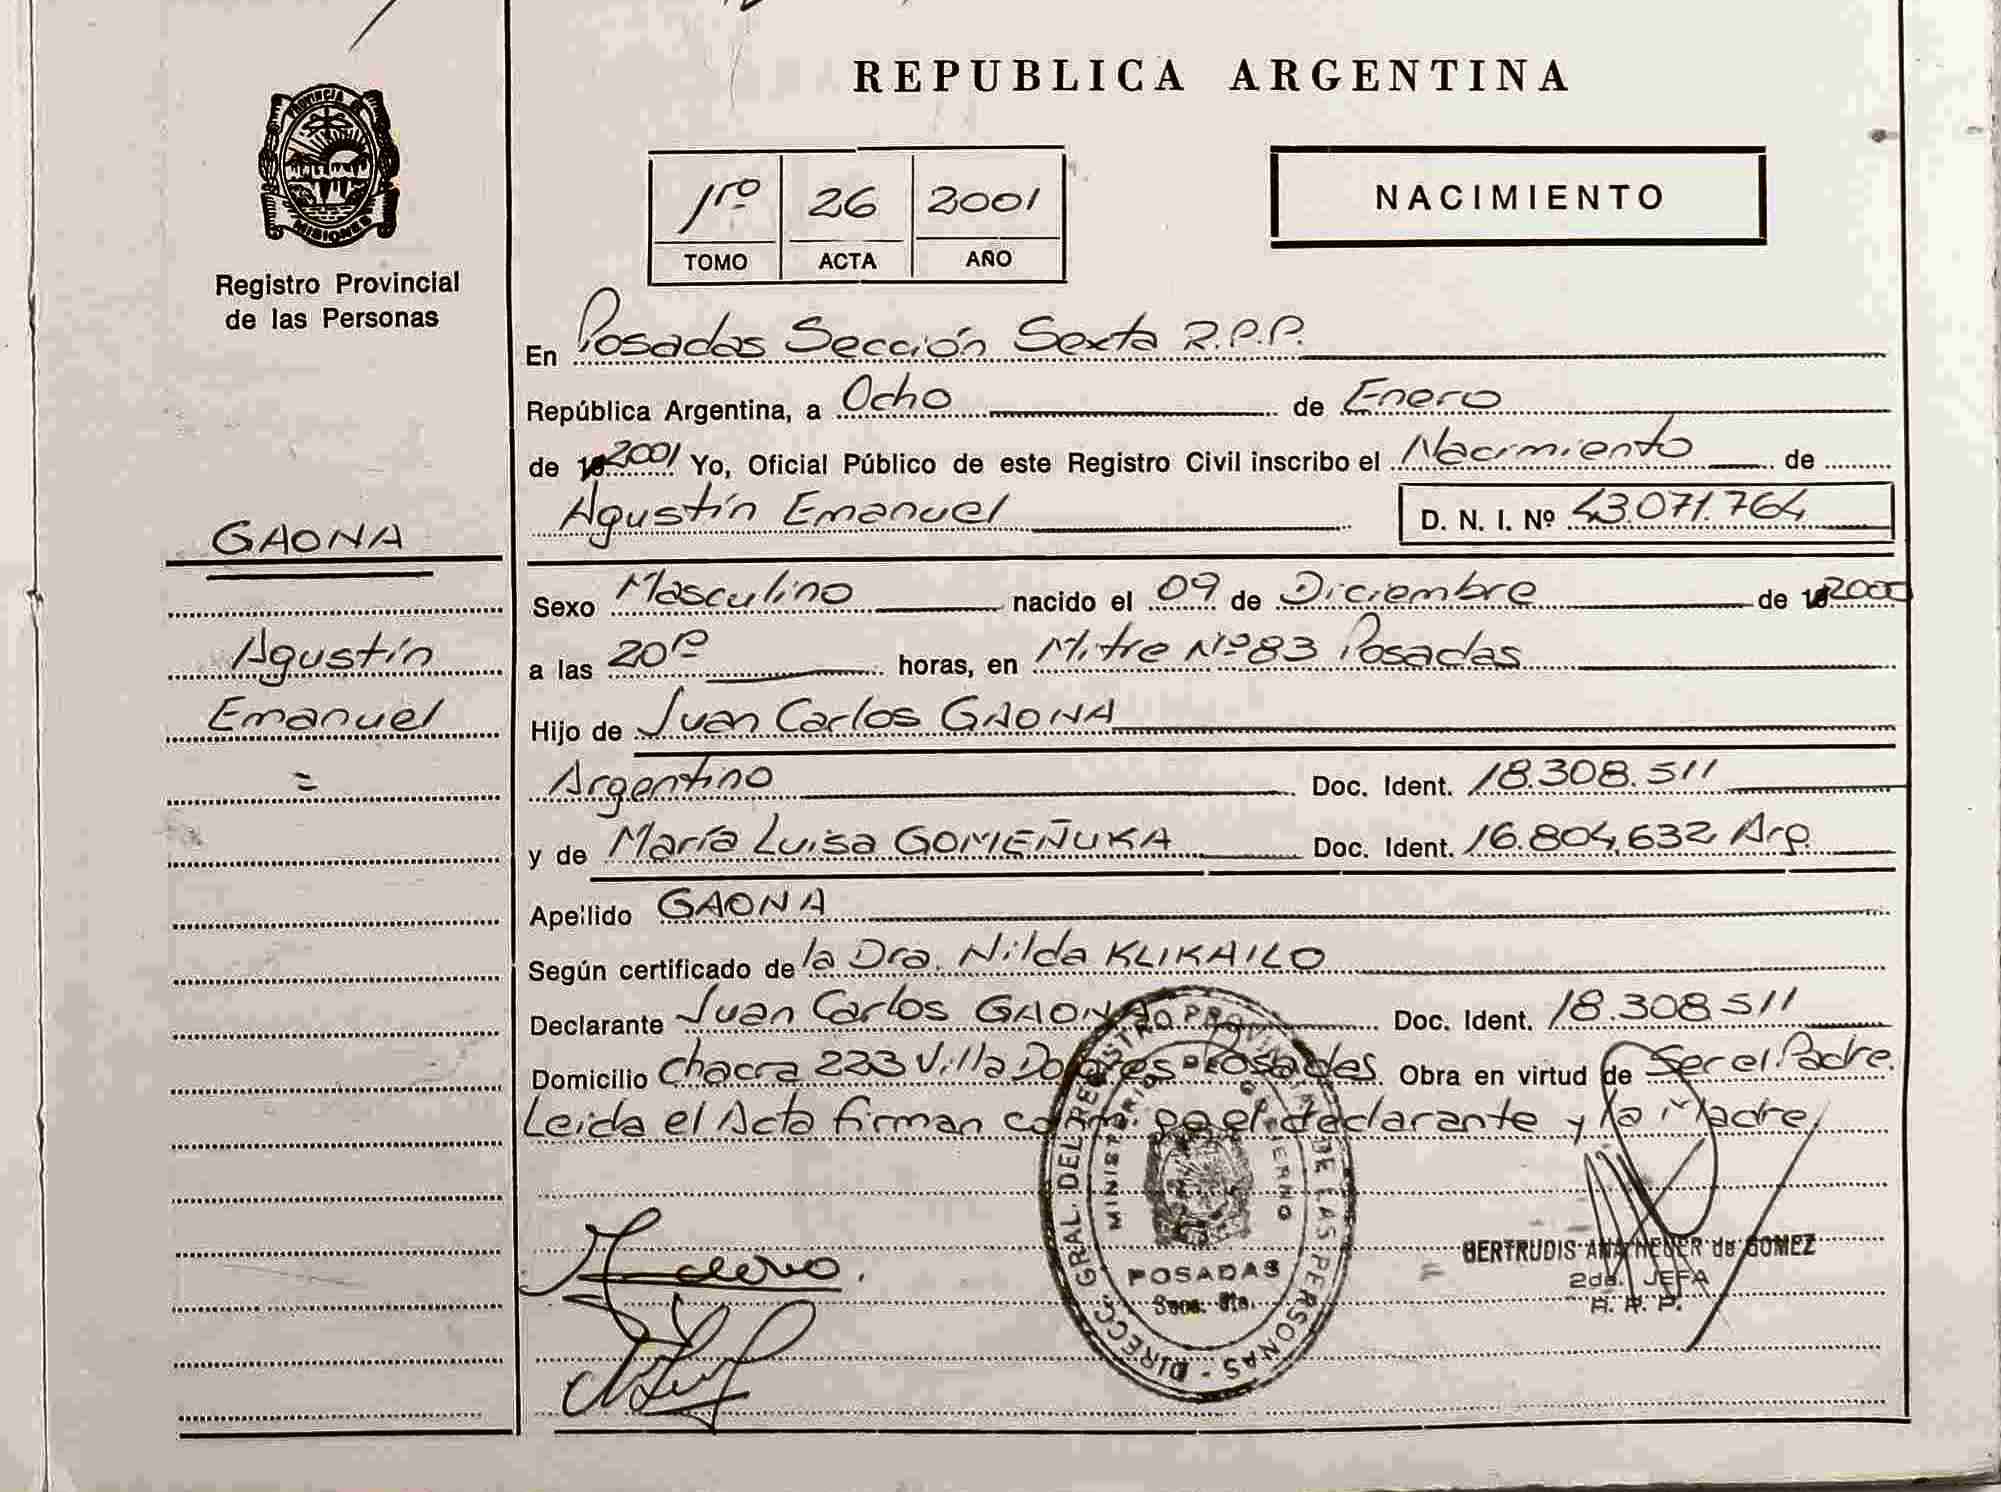 PROVINCIA DE
MISIONES
Registro Provincial
de las Personas
GAONA
Agustín
Emanuel
=
REPUBLICA ARGENTINA
1ro 26 2001
TOMO ACTA AÑO
NACIMIENTO
En Posadas Sección Sexta R.P.P.
República Argentina, a Ocho de Enero
de 2001 Yo, Oficial Público de este Registro Civil inscribo el Nacimiento de
Agustín Emanuel D. N. I. Nº 43.071.764
Sexo Masculino nacido el 09 de Diciembre de 2000
a las 20 horas, en Mitre Nº 83 Posadas
Hijo de Juan Carlos GAONA
Argentino Doc. Ident. 18.308.511
y de María Luisa GOMEÑUKA Doc. Ident. 16.804.632 Arg.
Apellido GAONA
Según certificado de la Dra. Nilda KLIKAILO
Declarante Juan Carlos GAONA Doc. Ident. 18.308.511
Domicilio Chacra 223 Villa Dolores Posadas Obra en virtud de Ser el Padre.
Leida el Acta firman conmigo el declarante y la Madre
DIRECC. GRAL. DEL REGISTRO PROVINCIAL DE LAS PERSONAS -
MINISTERIO DE GOBIERNO
POSADAS
Secc. 6ta.
GERTRUDIS ANA HEUER de GOMEZ
2da. JEFA
R. P. P.